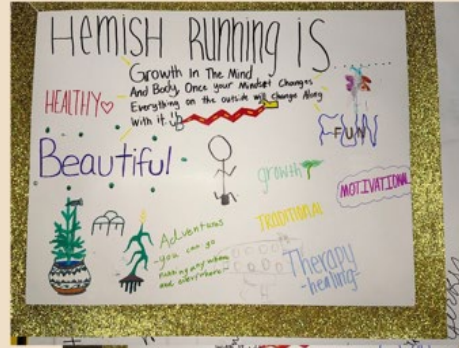 HEMISH RUNNING IS........
Growth In The Mind
And Body, Once your Mindset Changes
Everything on the outside will Change Along
With it.
HEALTHY
FUN
Beautiful
growth
MOTIVATIONAL
TRADITIONAL
Adventures
-you can go
running anywhere
and everywhere-
Therapy
-healing-